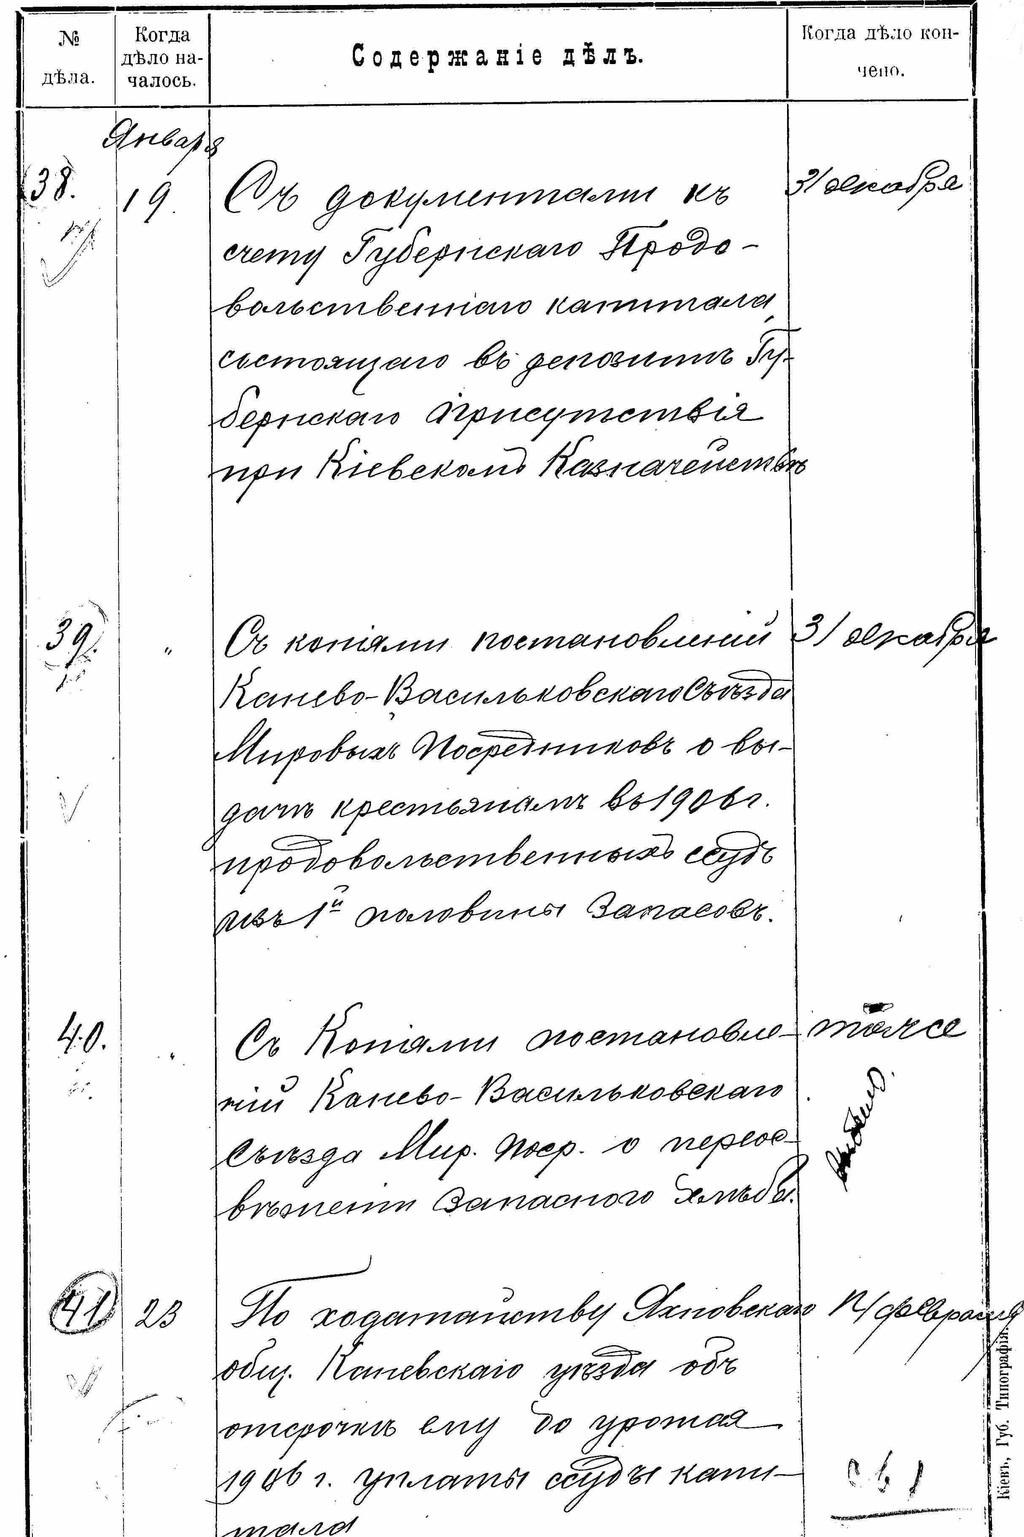 № дѣла.
Когда дѣло на-
чалось.
Содержаніе дѣлъ.
Когда дѣло кон-
чено.
Января
38.
19.
Съ документами къ
счету Губернскаго Продо-
вольственнаго капитала,
состоящаго въ депозитѣ Гу-
бернскаго Присутствія
при Кіевскомъ Казначействѣ
31 декабря
39.
"
Съ копіями постановленій
Канево-Васильковскаго Съѣзда
Мировыхъ Посредниковъ о вы-
дачѣ крестьянамъ въ 1906 г.
продовольственныхъ ссудъ
изъ 1й половины запасовъ.
31 декабря
40.
"
Съ Копіями постановле-
ній Канево-Васильковскаго
Съѣзда Мир. Поср. о переос-
вѣженіи запасного хлѣба.
тоже
41
23
По ходатайству Яхновскаго
общ. Каневскаго уѣзда объ
отсрочкѣ ему до урожая
1906 г. уплаты ссуды капи-
тала
17 февраля
св 1
Кіевъ, Губ. Типографія.